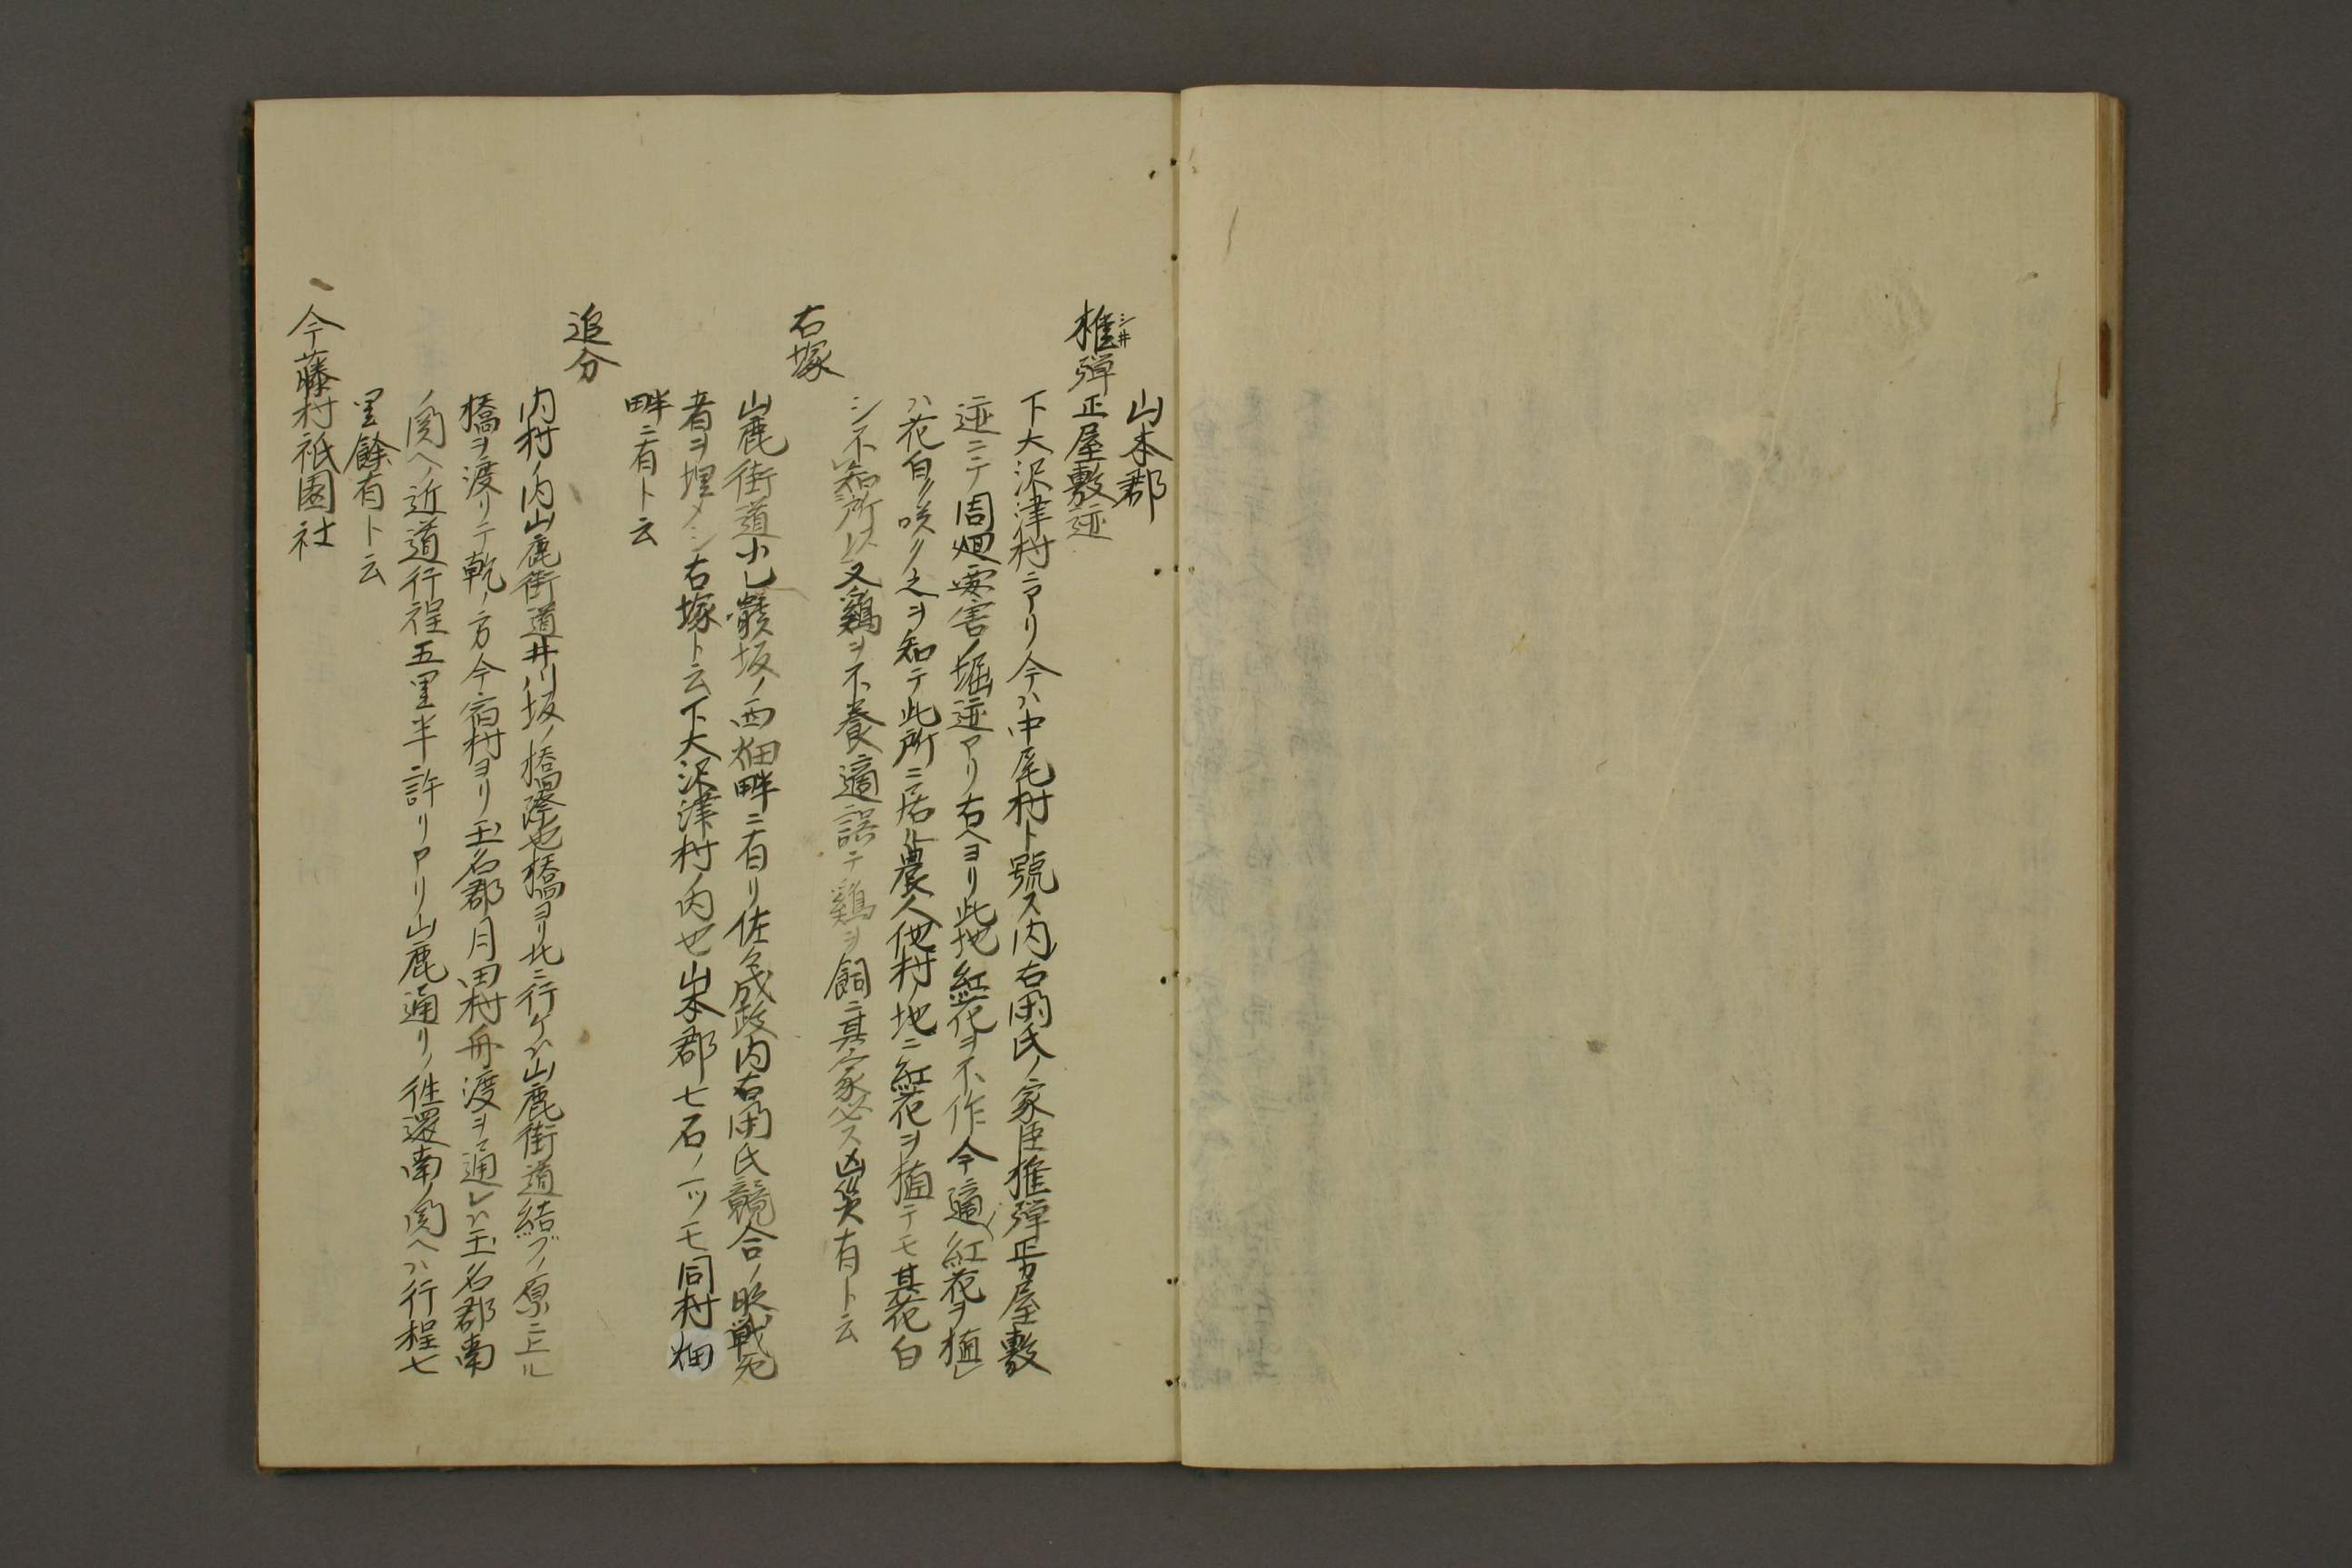 山本郡
椎弾正屋敷迹
シ井
下大沢津村ニアリ今ハ中尾村ト號ス内右衛氏ノ家臣椎弾正カ屋敷
迹ニテ周廻要害ノ堀迹アリ右ヘヨリ此地紅花ヲ不作今適〱紅花ヲ植レ
ハ花白ク咲ク之ヲ知テ此所ニ居ル農人他村ノ地ニ紅花ヲ植テモ其花白
シ不知所以又鷄ヲ不養適誤テ鷄ヲ飼ニ其家必ス凶災有ト云
右塚
山鹿街道小シ嶽坂ノ西畑畔ニ有リ佐々成政内右衛氏競合ノ時戦死
者ヲ埋メシ右塚ト云下大沢津村ノ内也山本郡七石ノ一ツモ同村畑
畔ニ有ト云
追分
内村ノ内山鹿街道井川坂ノ橋際也橋ヨリ北ニ行ケハ山鹿街道結ブノ原ニ上ル
橋ヲ渡リテ乾ノ方今宿村ヨリ玉名郡月田村舟渡ヲ通レハ玉名郡南
ノ関ヘノ近道行程五里半許リアリ山鹿通リノ往還南ノ関ヘハ行程七
里餘有ト云
今藤村祇園社